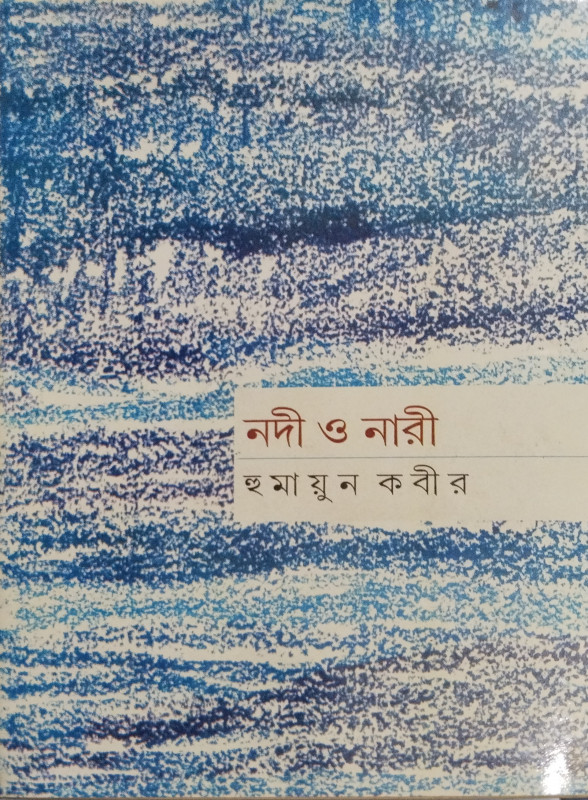 নদী ও নারী
হুমায়ুন কবীর